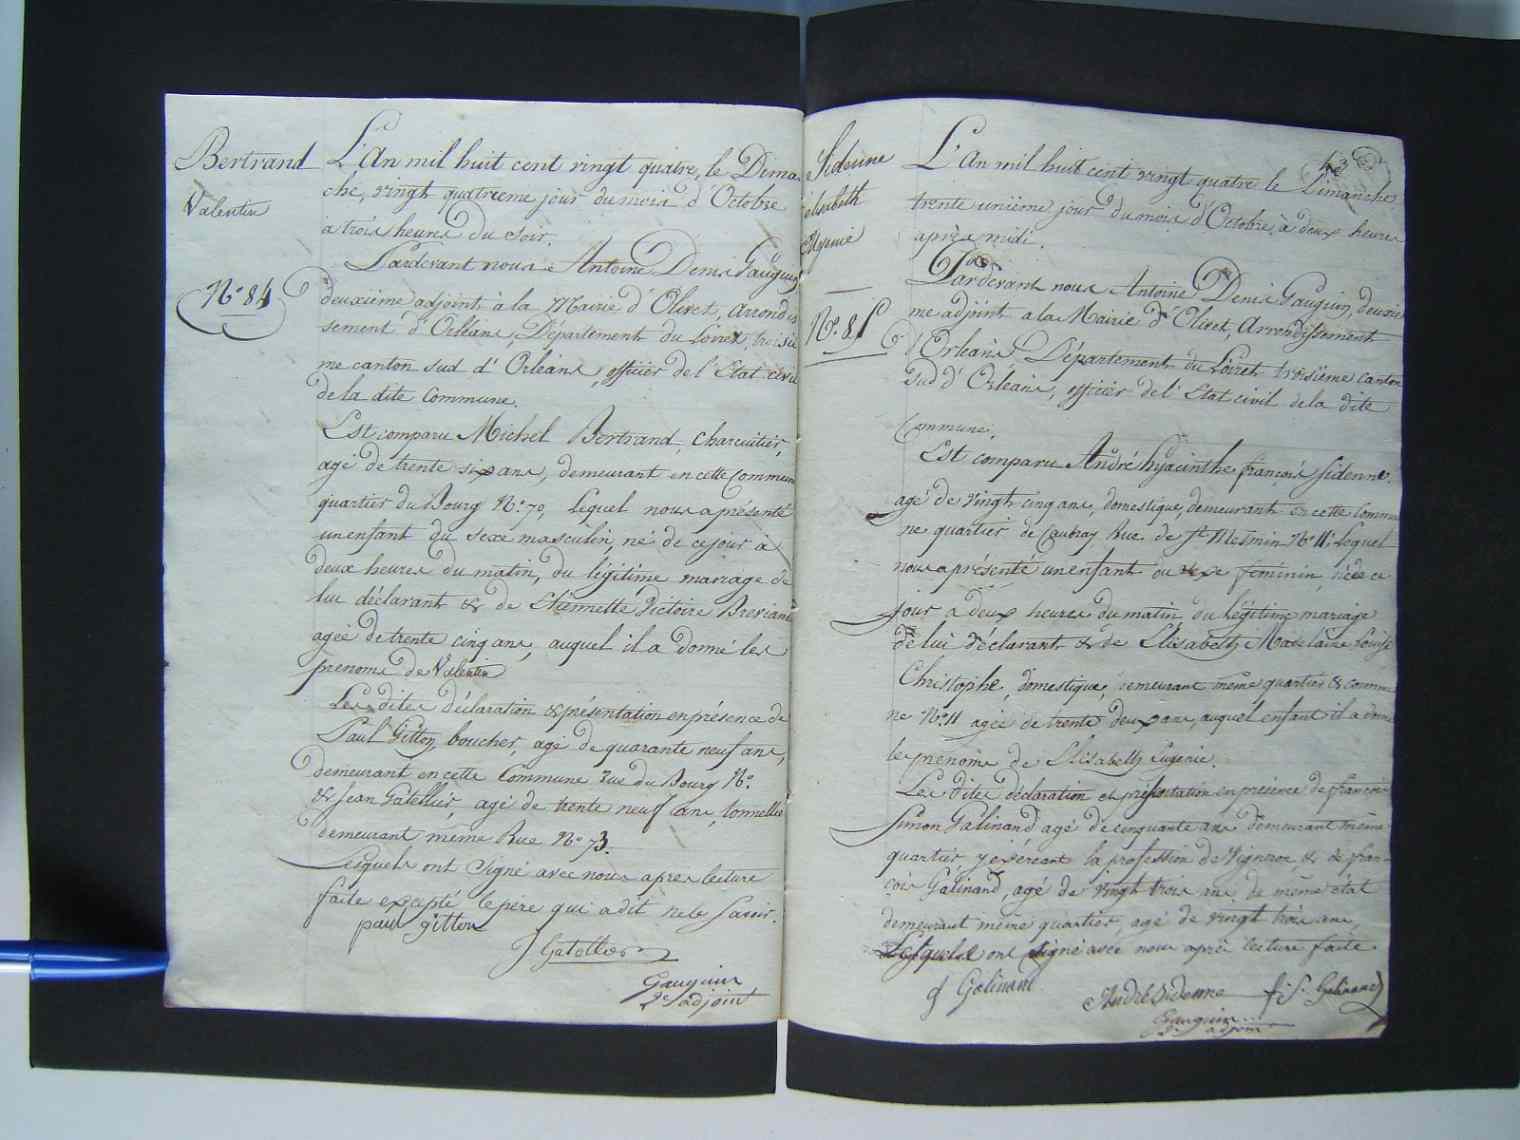 Bertrand
Valentin
N.° 84
L'An mil huit cent vingt quatre, le Diman
che, vingt quatrieme jour du mois d'Octobre
à trois heures du soir.
Pardevant nous Antoine Denis Gauguin
deuxième adjoint à la Mairie d'Olivet, arrondis
sement d'Orléans, Département du Loiret, troisiè
me canton sud d'Orléans, officier de l'Etat civil
de la dite Commune.
Est comparu Michel Bertrand, charcutier,
agé de trente six ans, demeurant en cette Commune
quartier du Bourg N.° 70, Lequel nous a présenté
un enfant du sexe masculin, né de ce jour à
deux heures du matin, du légitime mariage de
lui déclarant & de Etiennette Victoire
agée de trente cinq ans, auquel il a donné les
prenoms de Valentin
Les dites déclaration & présentation en présence de
Paul Gitton, boucher, agé de quarante neuf ans,
demeurant en cette Commune rue du Bourg N.°
& Jean Gatellier, agé de trente neuf ans, tonnellier
demeurant même Rue N.° 73.
Lesquels ont signé avec nous apres lecture
faite excepté le pere qui a dit ne le savoir.
paul gitton
J Gatellier
Gauguin
2.e adjoint
Sidenne
élisabeth
Eugenie
N.° 85
43
L'An mil huit cent vingt quatre le Dimanche
trente unième jour du mois d'Octobre, à deux heures
après midi.
Pardevant nous Antoine Denis Gauguin, deuxiè
me adjoint a la Mairie d'Olivet, Arrondissement
d'Orléans Département du Loiret, troisième canton
Sud d'Orléans, officier de l'Etat civil de la dite
Commune.
Est comparu André hyacinthe françois Sidenne,
agé de vingt cinq ans, domestique, demeurant en cette Commu
ne quartier de Caubray Rue de S.t Mesmin N.° 11, Lequel
nous a présenté un enfant du sexe feminin, née de ce
jour à deux heures du matin, du légitime mariage
de lui déclarant & de Elisabeth Madelaine Louise
Christophe, domestique, demeurant même quartier & commu
ne N.° 11 agée de trente deux ans, auquel enfant il a donné
les prenoms de Elisabeth Eugenie.
Les dites déclaration et présentation en présence de françois
Simon Galinand agé de cinquante ans demeurant même
quartier, y exércant la profession de Vigneron & de fran-
çois Galinand, agé de vingt trois ans de même état
demeurant même quartier, agé de vingt trois ans
Lesquels ont signé avec nous après lecture faite
f Galinand
André Sidenne
f. S. Galinand
Gauguin
2.e adjoint